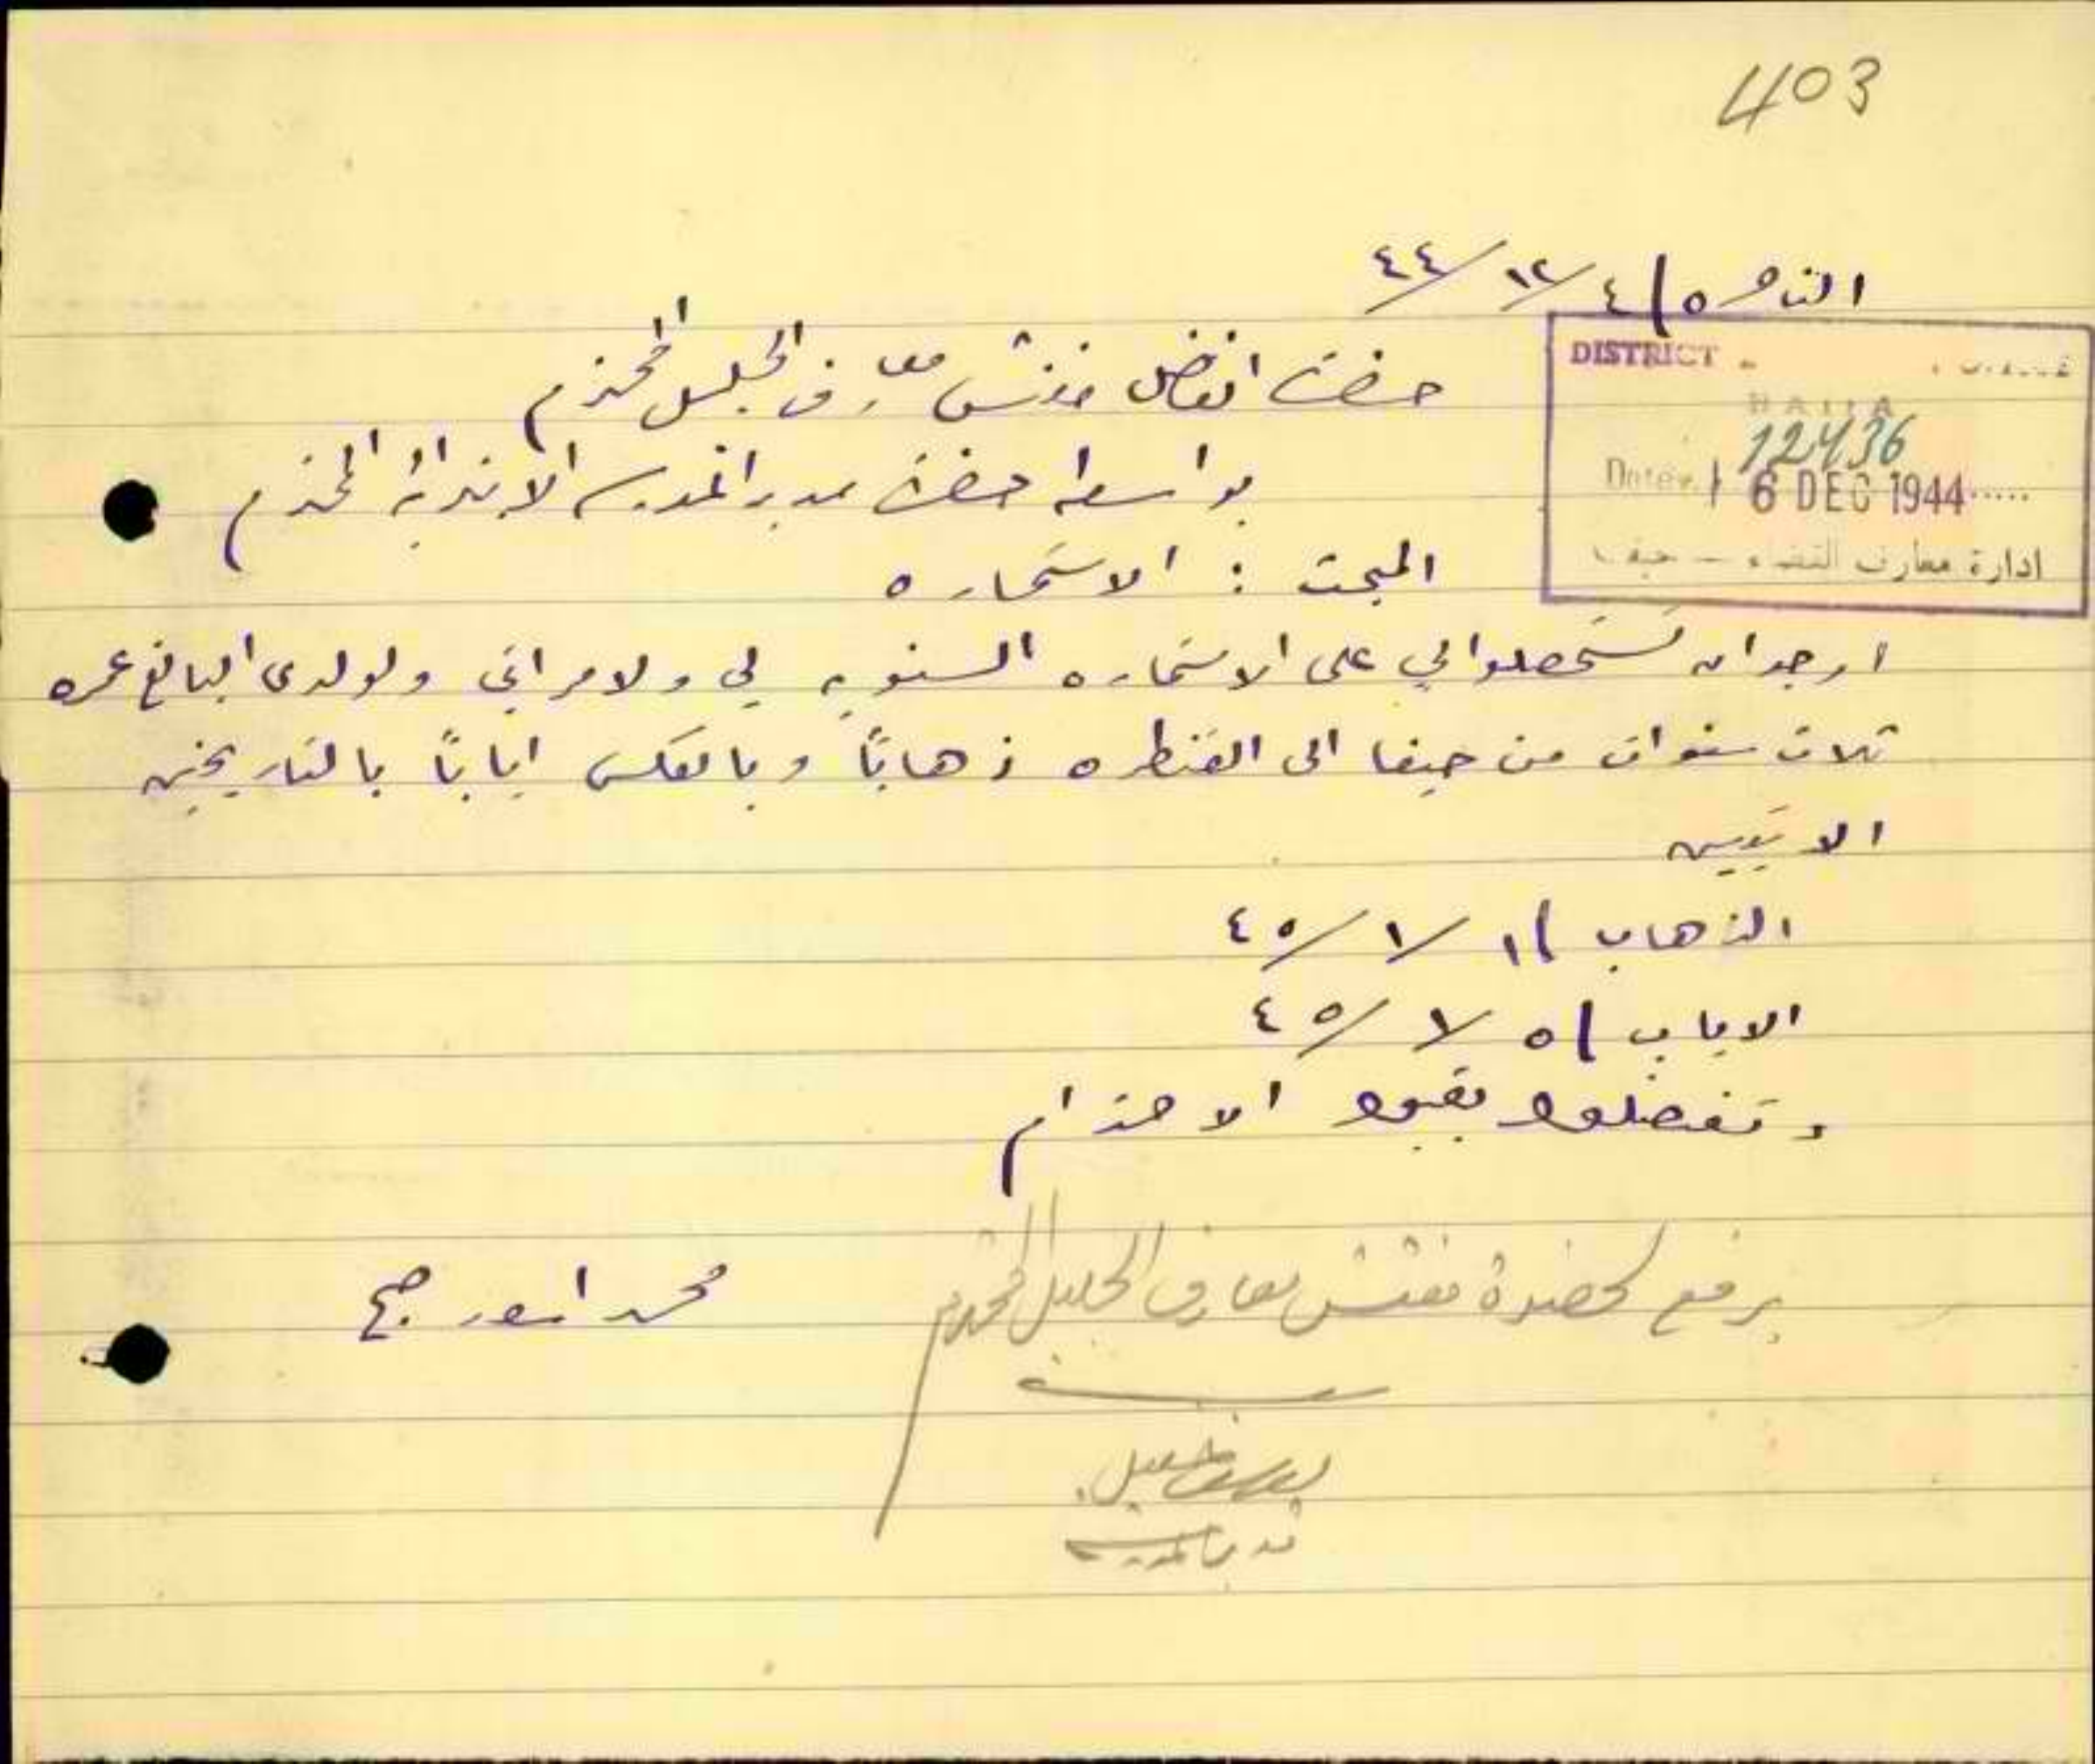 403
الناصره ٤/١٢/٤٤
DISTRICT
HAIFA
12436
Date 6 DEC 1944
ادارة معارف القضاء - حيفا
حضرة الفاضل مفتش معارف الجليل المحترم
بواسطة حضرة مدير المدرسه الابتدائيه المحترم
المبحث : الاستماره
ارجو ان تستحصلوا لي على الاستماره السنويه لي ولامراتي ولولدى البالغ عمره
ثلاث سنوات من حيفا الى القنطره ذهاباً وبالعكس اياباً بالتاريخين
الاتيين
الذهاب ١/١/٤٥
الاياب ٥/١/٤٥
وتفضلوا بقبول الاحترام
يرفع لحضرة مفتش معارف الجليل المحترم
محمد
مدير المدرسه